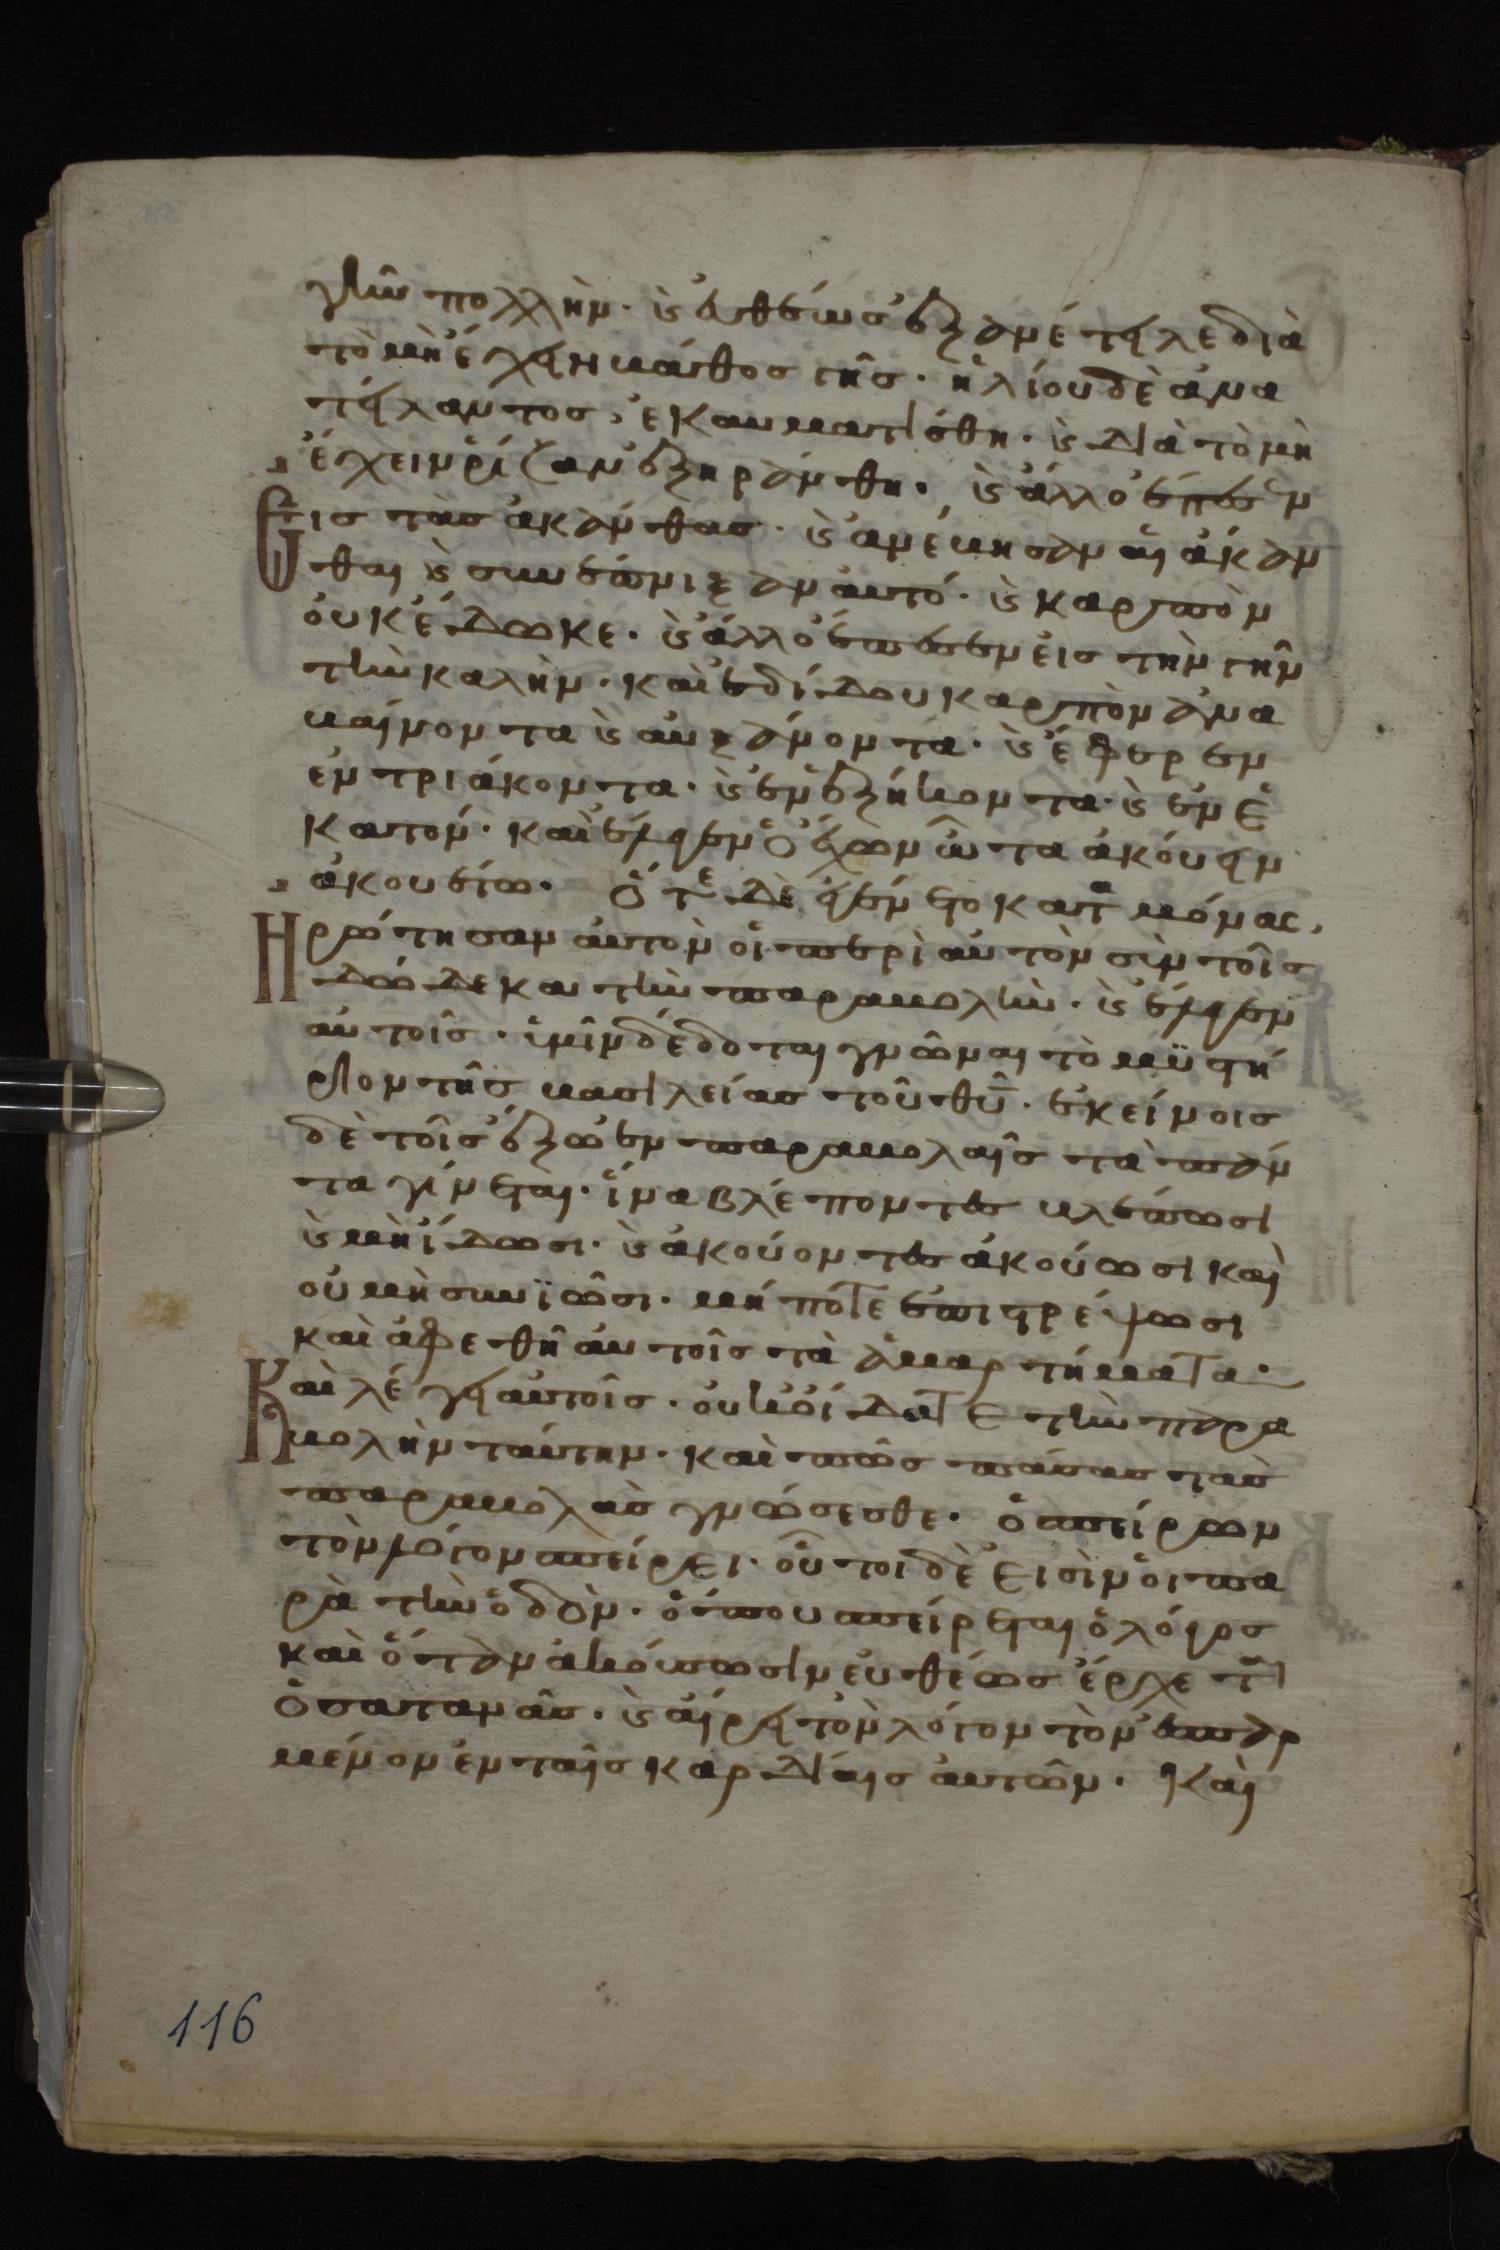 γῆν πολλήν· καὶ εὐθέως ἐξανέτειλε διὰ
τὸ μὴ ἔχειν βάθος γῆς· ἡλίου δὲ ἀνα
τείλαντος, ἐκαυματίσθη· καὶ διὰ τὸ μὴ
ἔχειν ῥίζαν ἐξηράνθη· καὶ ἄλλο ἔπεσεν
εις τὰς ἀκάνθας· καὶ ἀνέβησαν αἱ ἄκαν
θαι καὶ συνέπνιξαν αὐτό· καὶ καρπὸν
οὐκ ἔδωκε· καὶ ἄλλο ἔπεσεν εἰς τὴν γῆν
τὴν καλήν· καὶ ἐδίδου καρπὸν ἀνα
βαίνοντα καὶ αὐξάνοντα· καὶ ἔφερεν
ἐν τριάκοντα· καὶ ἐν ἑξήκοντα· καὶ ἐν ἑ
κατόν· καὶ ἔλεγεν ὁ ἔχων ὦτα ἀκούειν
ἀκουέτω· ὅτε δὲ ἐγένετο κατα μόνας,
Ηρώτησαν αὐτὸν οἱ περὶ αὐτὸν σὺν τοῖς
δώδεκα τὴν παραβολήν· καὶ ἔλεγεν
αὐτοῖς· ὑμῖν δέδοται γνῶναι τὸ μυστή
ριον τῆς βασιλείας τοῦ θῦ· ἐκείνοις
δὲ τοῖς ἔξω ἐν παραβολαῖς τὰ πάν
τα γίνεται· ἵνα βλέποντες βλέπωσι
καὶ μὴ ἴδωσι· καὶ ἀκούοντες ἀκούωσι καὶ
οὐ μὴ συνϊῶσι· μή ποτε ἐπιστρέψωσι
καὶ ἀφεθῆ αὐτοῖς τὰ ἁμαρτήματα·
Καὶ λέγει αὐτοῖς· οὐκ οἴδατε τὴν παρα
βολὴν ταύτην· καὶ πῶς πάσας τὰς
παραβολὰς γνώσεσθε· ὁ σπείρων
τὸν λόγον σπείρει· οὗτοι δὲ εἰσὶν οἱ πα
ρὰ τὴν ὁδὸν· ὅπου σπείρεται ὁ λόγος
καὶ ὅταν ἀκούσωσιν εὐθέως ἔρχεται
ὁ σατανᾶς· καὶ αἴρει τὸν λόγον τὸν ἐσπαρ
μένον ἐν ταῖς καρδίαις αὐτῶν· Καὶ
116